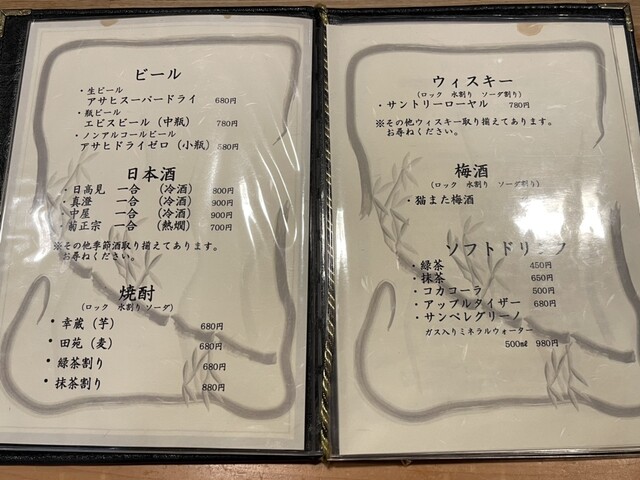 ビール
・生ビール
アサヒスーパードライ 680円
・瓶ビール
エビスビール（中瓶） 780円
・ノンアルコールビール
アサヒドライゼロ（小瓶） 580円
日本酒
・日高見 一合 （冷酒） 800円
・真澄 一合 （冷酒） 900円
・中屋 一合 （冷酒） 900円
・菊正宗 一合 （熱燗） 700円
※その他季節酒取り揃えてあります。
お尋ねください。
焼酎
（ロック 水割り ソーダ）
・幸蔵（芋） 680円
・田苑（麦） 680円
・緑茶割り 680円
・抹茶割り 880円
ウィスキー
（ロック 水割り ソーダ割り）
・サントリーローヤル 780円
※その他ウィスキー取り揃えてあります。
お尋ねください。
梅酒
（ロック 水割り ソーダ割り）
・猫また梅酒
ソフトドリンク
・緑茶 450円
・抹茶 650円
・コカコーラ 500円
・アップルタイザー 680円
・サンペレグリーノ
ガス入りミネラルウォーター
500㎖ 980円